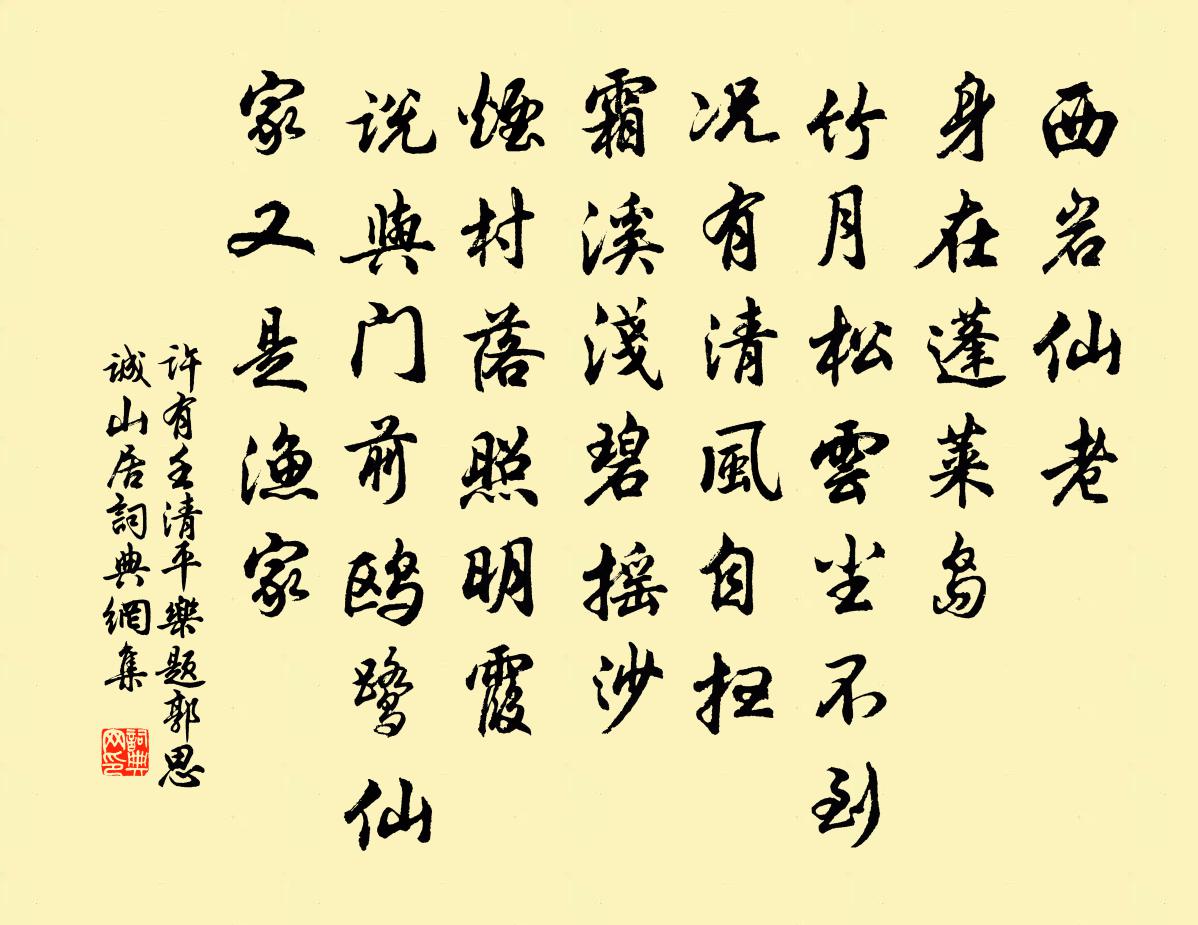 西岩仙老
身在蓬莱岛
竹月松雲尘不到
况有清風自扫
霜溪淺碧摇沙
煙村落照明霞
说與门前鸥鹭仙
家又是渔家
许有壬清平樂题郭思
诚山居詞典網集
詞典
网印